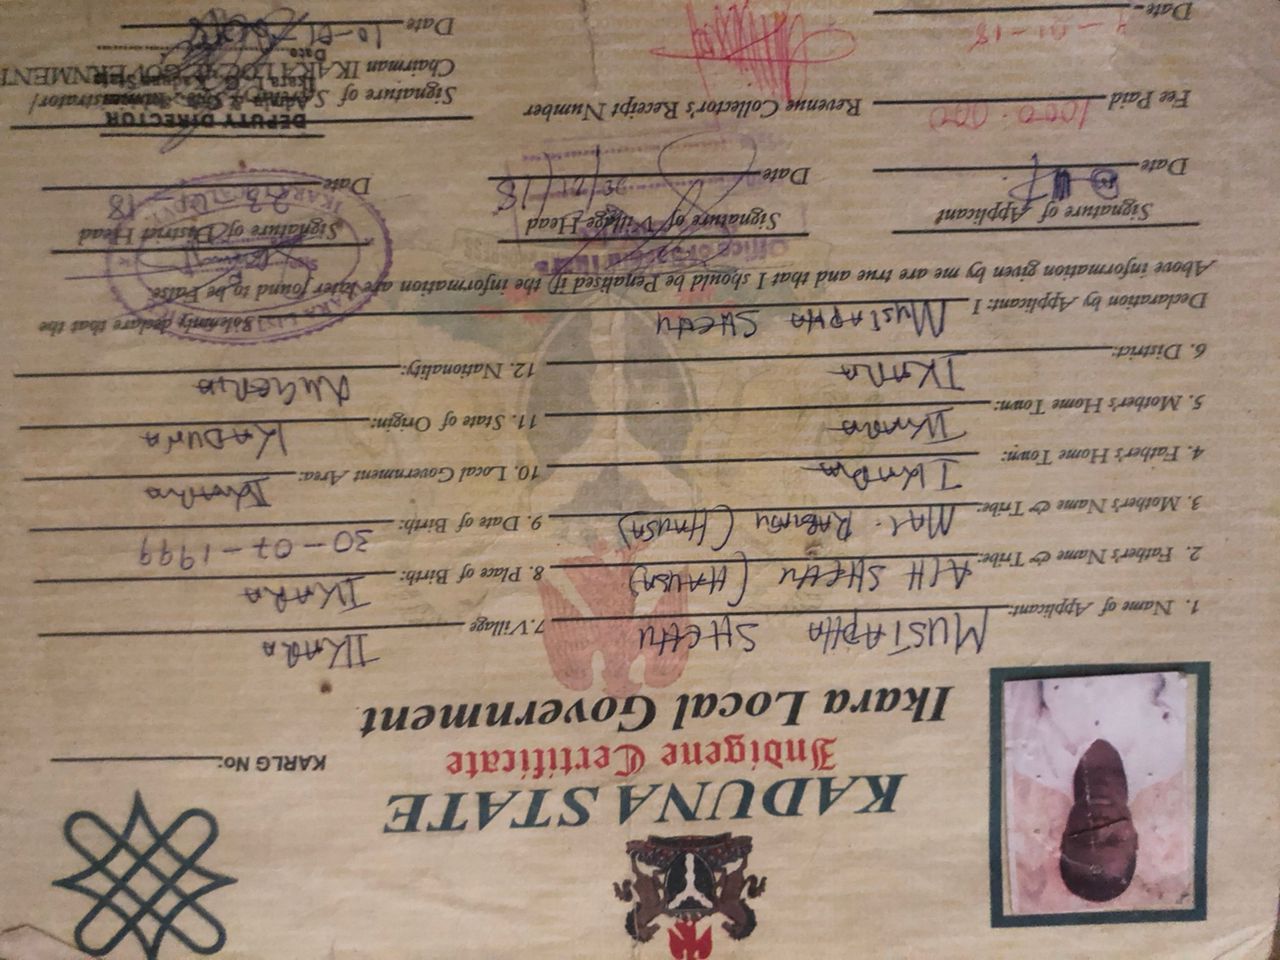 KADUNA STATE
Indigene Certificate
KARLG No:
Ikara Local Government
1. Name of Applicant: MUSTAPHA SHEHU 7. Village IKARA
2. Father's Name & Tribe: ALH SHEHU (HAUSA) 8. Place of Birth: IKARA
3. Mother's Name & Tribe: MAL. RABIATU (HAUSA) 9. Date of Birth: 30-07-1999
4. Father's Home Town: IKARA 10. Local Government Area: IKARA
5. Mother's Home Town: IKARA 11. State of Origin: KADUNA
6. District: IKARA 12. Nationality: NIGERIA
Declaration by Applicant: I MUSTAPHA SHEHU Solemnly declare that the
Above information given by me are true and that I should be Penalised if the information are later found to be False
Signature of Applicant Signature of Village Head Signature of District Head
Date Date Date 18
Fee Paid 1000.000 Revenue Collector's Receipt Number Signature of
DEPUTY DIRECTOR
Chairman IKARA LOCAL GOVERNMENT
Date -01-18 Date